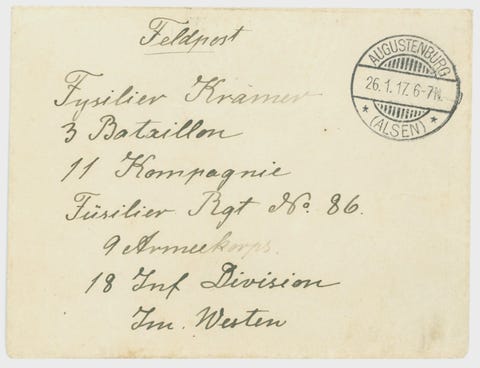 Feldpost
AUGUSTENBURG
26.1.17.6-7N.
* (ALSEN) *
Fysilier Krämer
3 Bataillon
11 Kompagnie
Füsilier Rgt No. 86.
9 Armeekorps.
18 Inf Division
Im. Westen